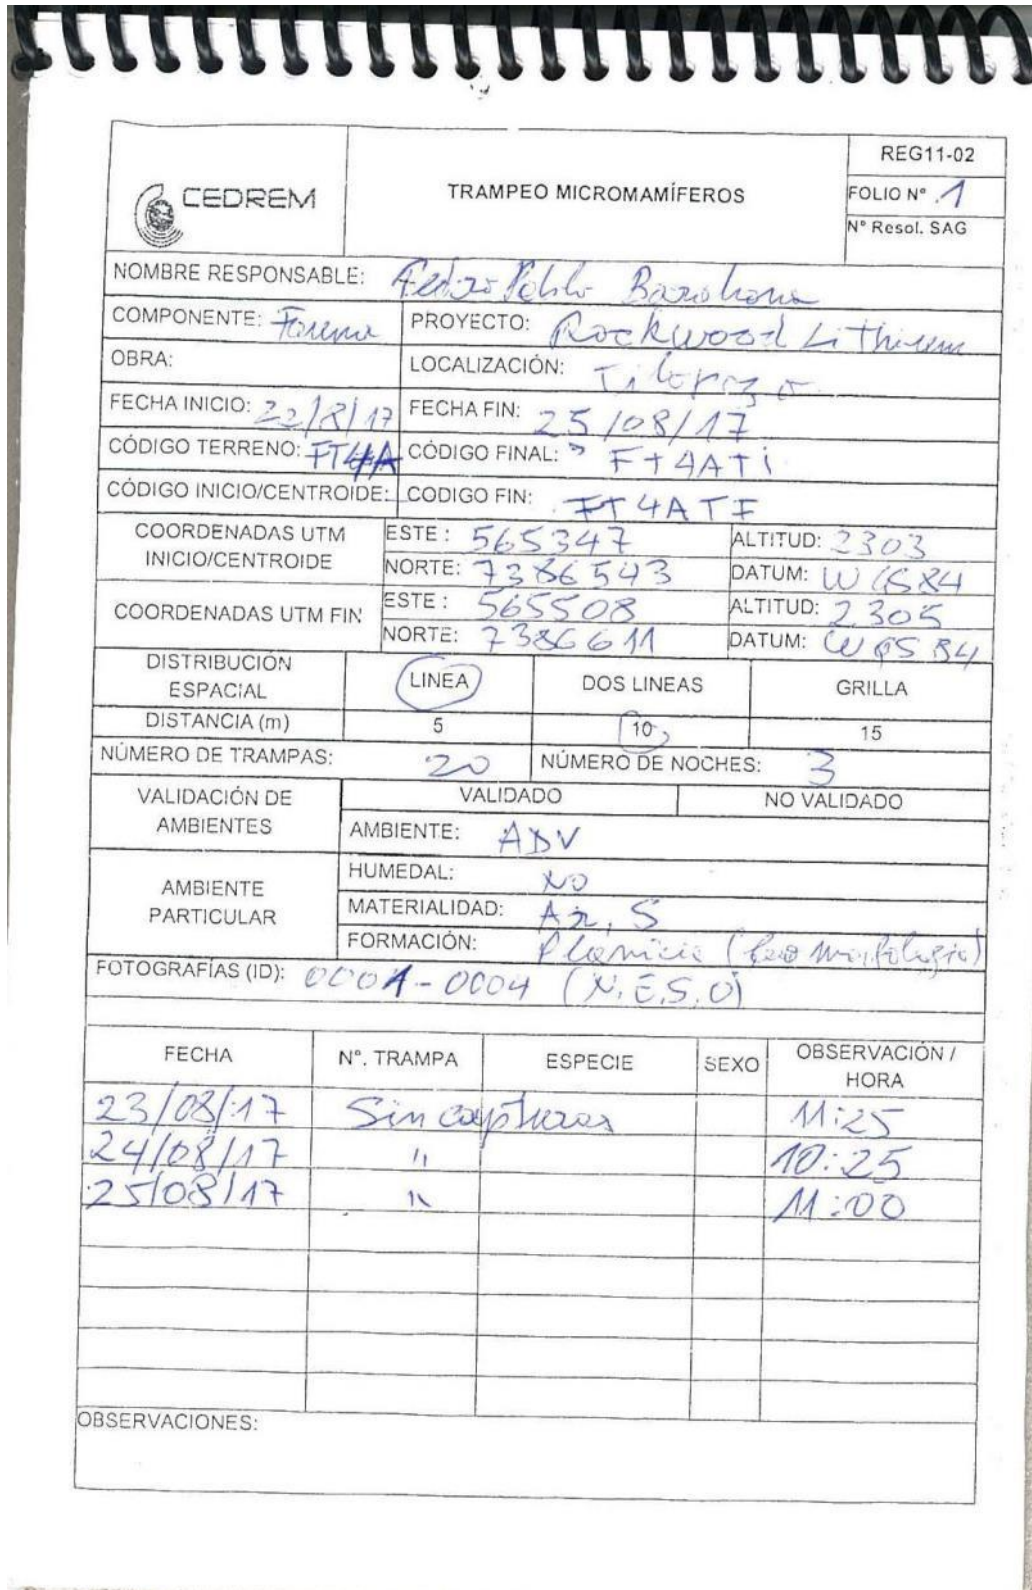 CEDREM
TRAMPEO MICROMAMÍFEROS
REG11-02
FOLIO N° 1
N° Resol. SAG
NOMBRE RESPONSABLE: Pedro Pablo Barahona
COMPONENTE: Fauna PROYECTO: Rockwood Lithium
OBRA: LOCALIZACIÓN:
FECHA INICIO: 22/8/17 FECHA FIN: 25/08/17
CÓDIGO TERRENO: FT4A CÓDIGO FINAL: FT4ATi
CÓDIGO INICIO/CENTROIDE: CODIGO FIN: FT4ATF
COORDENADAS UTM INICIO/CENTROIDE
ESTE: 565347 ALTITUD: 2303
NORTE: 7386543 DATUM: WGS84
COORDENADAS UTM FIN
ESTE: 565508 ALTITUD: 2305
NORTE: 7386611 DATUM: WGS84
DISTRIBUCIÓN ESPACIAL LINEA DOS LINEAS GRILLA
DISTANCIA (m) 5 10 15
NÚMERO DE TRAMPAS: 20 NÚMERO DE NOCHES: 3
VALIDACIÓN DE AMBIENTES VALIDADO NO VALIDADO
AMBIENTE: ADV
AMBIENTE PARTICULAR
HUMEDAL: NO
MATERIALIDAD: Ar, S
FORMACIÓN: Planicie (Geomorfologia)
FOTOGRAFÍAS (ID): 0001-0004 (N,E,S,O)
FECHA N°. TRAMPA ESPECIE SEXO OBSERVACIÓN / HORA
23/08/17 Sin capturas 11:25
24/08/17 " 10:25
25/08/17 " 11:00
OBSERVACIONES: